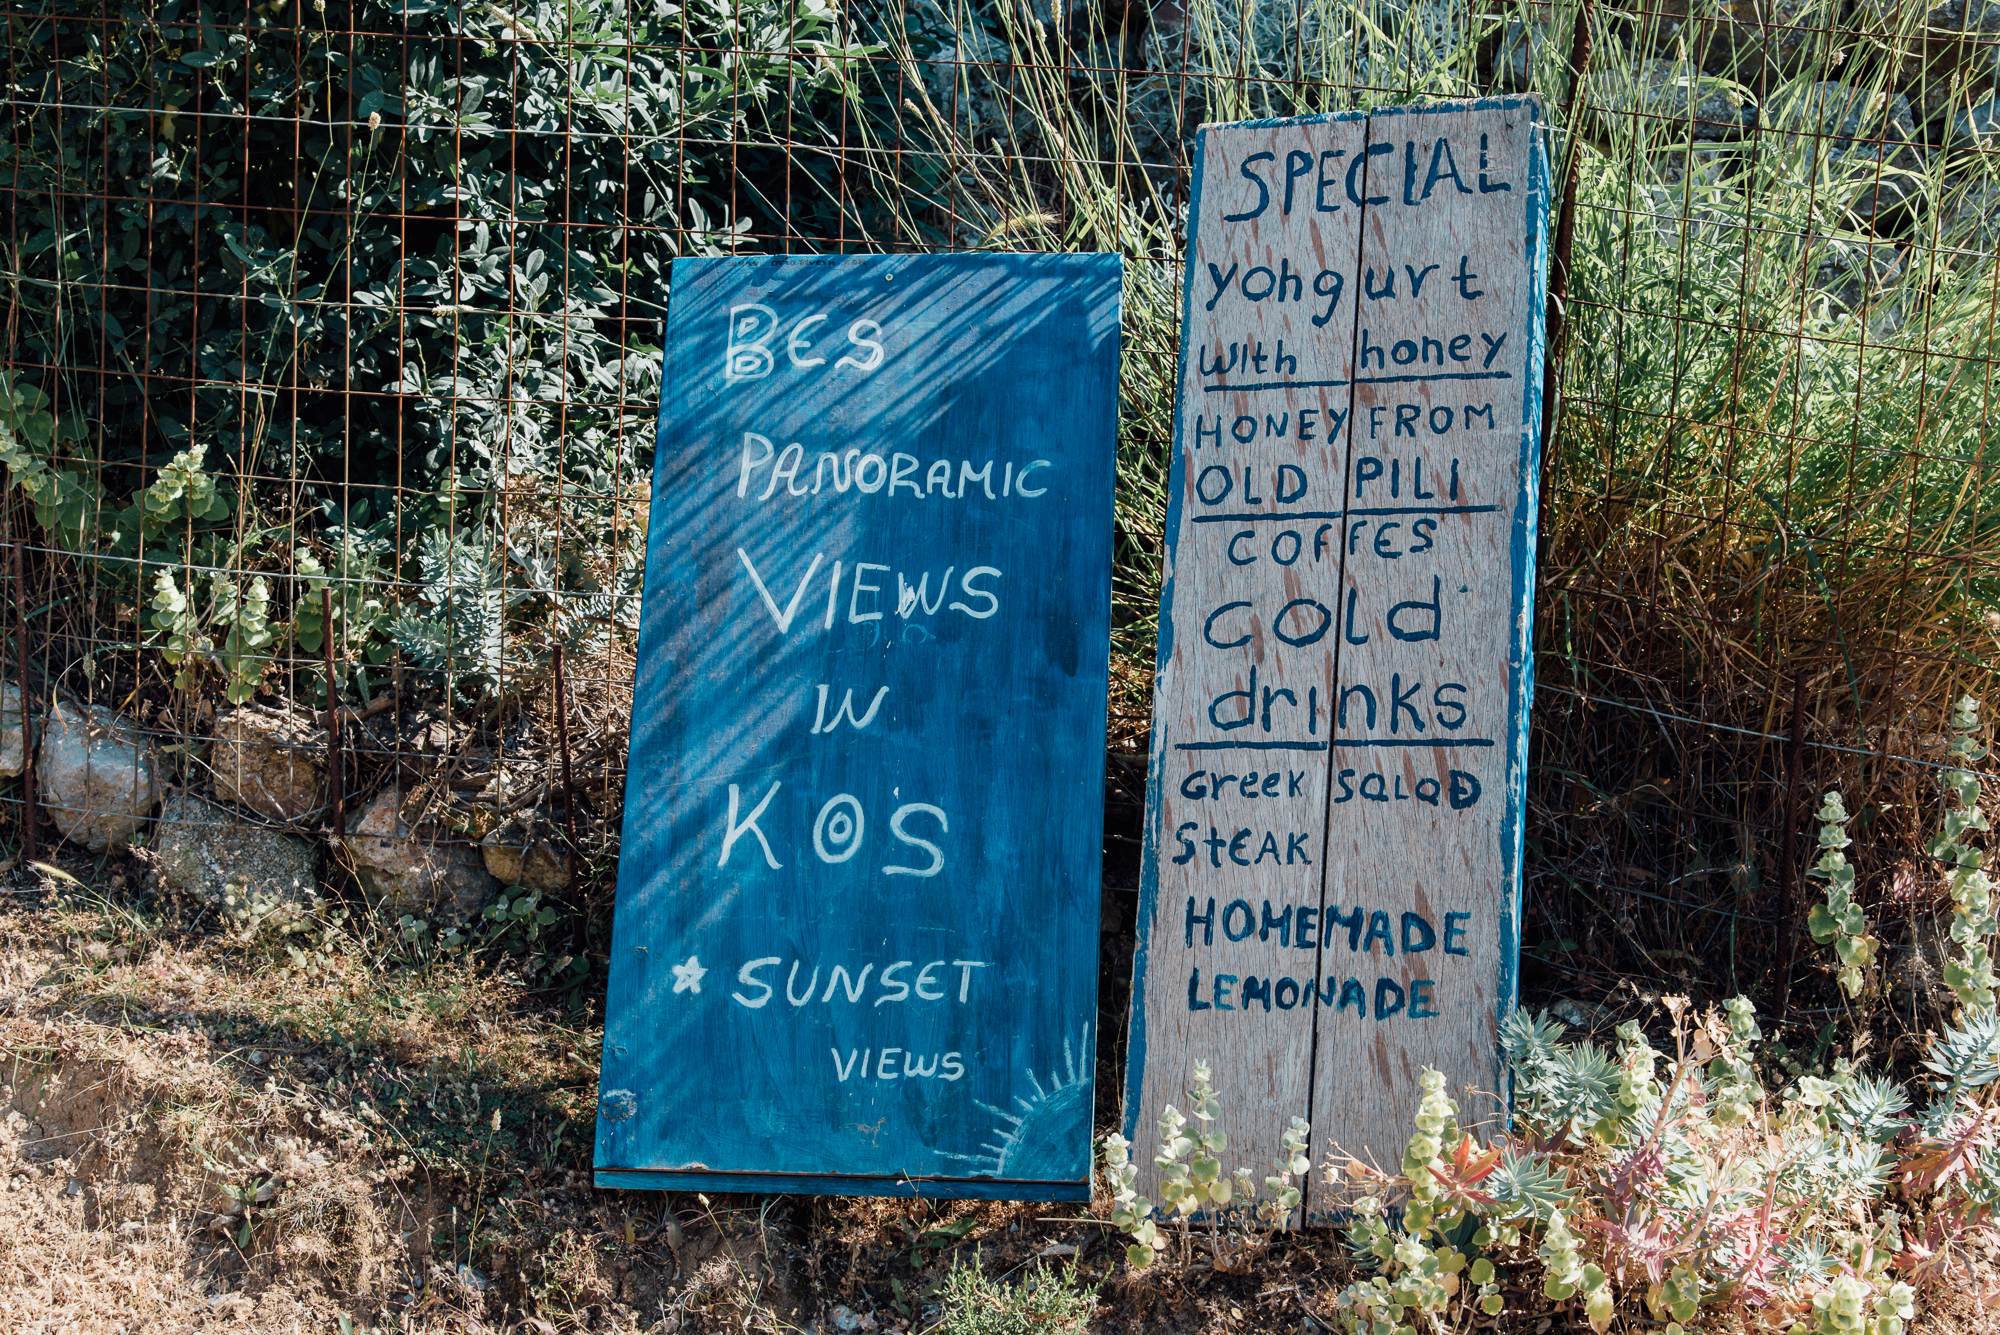 BES
PANORAMIC
VIEWS
IN
KOS
SUNSET
VIEWS
SPECIAL
yohgurt
with honey
HONEY FROM
OLD PILI
COFFES
cold
drinks
Greek SALAD
StEAK
HOMEMADE
LEMONADE